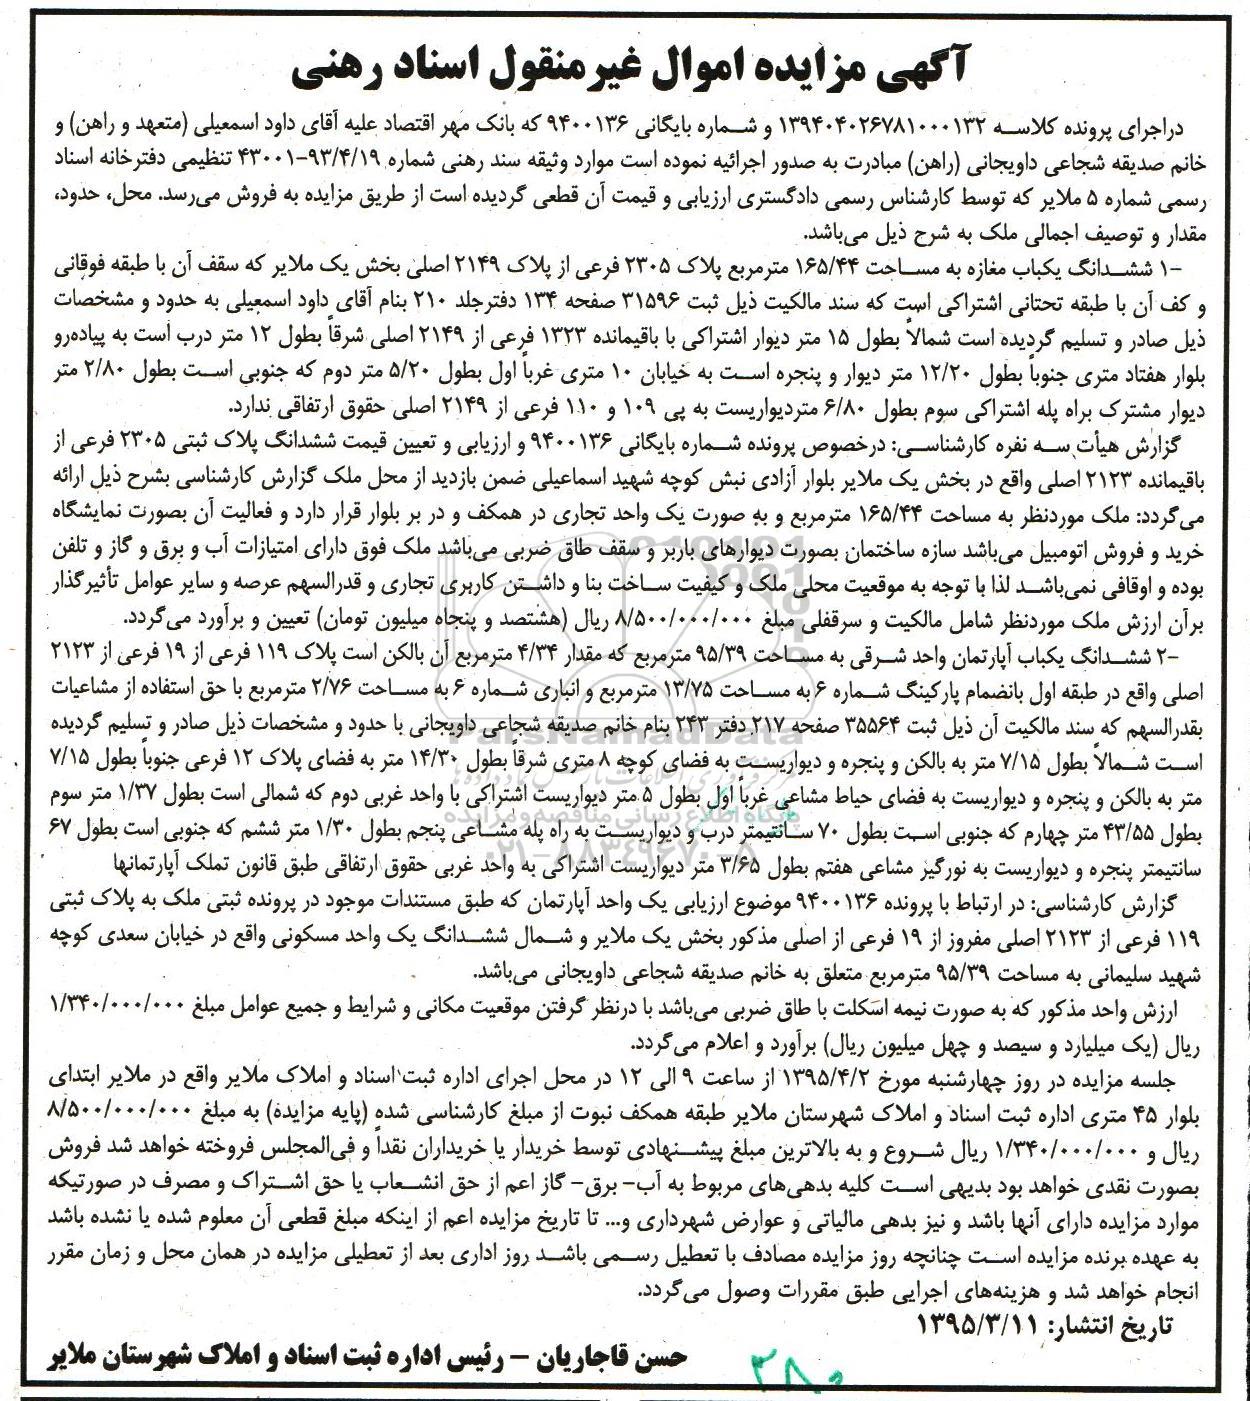 آگهی مزایده اموال غیرمنقول اسناد رهنی
دراجرای پرونده کلاسه ۱۳۹۴۰۴۰۲۶۷۸۱۰۰۰۱۳۲ و شماره بایگانی ۹۴۰۰۱۳۶ که بانک مهر اقتصاد علیه آقای داود اسمعیلی (متعهد و راهن) و
خانم صدیقه شجاعی داویجانی (راهن) مبادرت به صدور اجرائیه نموده است موارد وثیقه سند رهنی شماره ۹۳/۴/۱۹-۴۳۰۰۱ تنظیمی دفترخانه اسناد
رسمی شماره ۵ ملایر که توسط کارشناس رسمی دادگستری ارزیابی و قیمت آن قطعی گردیده است از طریق مزایده به فروش می‌رسد. محل، حدود،
مقدار و توصیف اجمالی ملک به شرح ذیل می‌باشد.
۱- ششدانگ یکباب مغازه به مساحت ۱۶۵/۴۴ مترمربع پلاک ۲۳۰۵ فرعی از پلاک ۲۱۴۹ اصلی بخش یک ملایر که سقف آن با طبقه فوقانی
و کف آن با طبقه تحتانی اشتراکی است که سند مالکیت ذیل ثبت ۳۱۵۹۶ صفحه ۱۳۴ دفترجلد ۲۱۰ بنام آقای داود اسمعیلی به حدود و مشخصات
ذیل صادر و تسلیم گردیده است شمالاً بطول ۱۵ متر دیوار اشتراکی با باقیمانده ۱۳۲۳ فرعی از ۲۱۴۹ اصلی شرقاً بطول ۱۲ متر درب است به پیاده‌رو
بلوار هفتاد متری جنوباً بطول ۱۲/۲۰ متر دیوار و پنجره است به خیابان ۱۰ متری غرباً اول بطول ۵/۲۰ متر دوم که جنوبی است بطول ۲/۸۰ متر
دیوار مشترک براه پله اشتراکی سوم بطول ۶/۸۰ متردیواریست به پی ۱۰۹ و ۱۱۰ فرعی از ۲۱۴۹ اصلی حقوق ارتفاقی ندارد.
گزارش هیأت سه نفره کارشناسی: درخصوص پرونده شماره بایگانی ۹۴۰۰۱۳۶ و ارزیابی و تعیین قیمت ششدانگ پلاک ثبتی ۲۳۰۵ فرعی از
باقیمانده ۲۱۲۳ اصلی واقع در بخش یک ملایر بلوار آزادی نبش کوچه شهید اسماعیلی ضمن بازدید از محل ملک گزارش کارشناسی بشرح ذیل ارائه
می‌گردد: ملک موردنظر به مساحت ۱۶۵/۴۴ مترمربع و به صورت یک واحد تجاری در همکف و در بر بلوار قرار دارد و فعالیت آن بصورت نمایشگاه
خرید و فروش اتومبیل می‌باشد سازه ساختمان بصورت دیوارهای باربر و سقف طاق ضربی می‌باشد ملک فوق دارای امتیازات آب و برق و گاز و تلفن
بوده و اوقافی نمی‌باشد لذا با توجه به موقعیت محلی ملک و کیفیت ساخت بنا و داشتن کاربری تجاری و قدرالسهم عرصه و سایر عوامل تأثیرگذار
برآن ارزش ملک موردنظر شامل مالکیت و سرقفلی مبلغ ۸/۵۰۰/۰۰۰/۰۰۰ ریال (هشتصد و پنجاه میلیون تومان) تعیین و برآورد می‌گردد.
۲- ششدانگ یکباب آپارتمان واحد شرقی به مساحت ۹۵/۳۹ مترمربع که مقدار ۴/۳۴ مترمربع آن بالکن است پلاک ۱۱۹ فرعی از ۱۹ فرعی از ۲۱۲۳
اصلی واقع در طبقه اول بانضمام پارکینگ شماره ۶ به مساحت ۱۳/۷۵ مترمربع و انباری شماره ۶ به مساحت ۲/۷۶ مترمربع با حق استفاده از مشاعیات
بقدرالسهم که سند مالکیت آن ذیل ثبت ۳۵۵۶۴ صفحه ۲۱۷ دفتر ۲۴۳ بنام خانم صدیقه شجاعی داویجانی با حدود و مشخصات ذیل صادر و تسلیم گردیده
است شمالاً بطول ۷/۱۵ متر به بالکن و پنجره و دیواریست به فضای کوچه ۸ متری شرقاً بطول ۱۴/۳۰ متر به فضای پلاک ۱۲ فرعی جنوباً بطول ۷/۱۵
متر به بالکن و پنجره و دیواریست به فضای حیاط مشاعی غرباً اول بطول ۵ متر دیواریست اشتراکی با واحد غربی دوم که شمالی است بطول ۱/۳۷ متر سوم
بطول ۴۳/۵۵ متر چهارم که جنوبی است بطول ۷۰ سانتیمتر درب و دیواریست به راه پله مشاعی پنجم بطول ۱/۳۰ متر ششم که جنوبی است بطول ۶۷
سانتیمتر پنجره و دیواریست به نورگیز مشاعی هفتم بطول ۳/۶۵ متر دیواریست اشتراکی به واحد غربی حقوق ارتفاقی طبق قانون تملک آپارتمانها
گزارش کارشناسی: در ارتباط با پرونده ۹۴۰۰۱۳۶ موضوع ارزیابی یک واحد آپارتمان که طبق مستندات موجود در پرونده ثبتی ملک به پلاک ثبتی
۱۱۹ فرعی از ۲۱۲۳ اصلی مفروز از ۱۹ فرعی از اصلی مذکور بخش یک ملایر و شمال ششدانگ یک واحد مسکونی واقع در خیابان سعدی کوچه
شهید سلیمانی به مساحت ۹۵/۳۹ مترمربع متعلق به خانم صدیقه شجاعی داویجانی می‌باشد.
ارزش واحد مذکور که به صورت نیمه اسکلت با طاق ضربی می‌باشد با درنظر گرفتن موقعیت مکانی و شرایط و جمیع عوامل مبلغ ۱/۳۴۰/۰۰۰/۰۰۰
ریال (یک میلیارد و سیصد و چهل میلیون ریال) برآورد و اعلام می‌گردد.
جلسه مزایده در روز چهارشنبه مورخ ۱۳۹۵/۴/۲ از ساعت ۹ الی ۱۲ در محل اجرای اداره ثبت اسناد و املاک ملایر واقع در ملایر ابتدای
بلوار ۴۵ متری اداره ثبت اسناد و املاک شهرستان ملایر طبقه همکف نبوت از مبلغ کارشناسی شده (پایه مزایده) به مبلغ ۸/۵۰۰/۰۰۰/۰۰۰
ریال و ۱/۳۴۰/۰۰۰/۰۰۰ ریال شروع و به بالاترین مبلغ پیشنهادی توسط خریدار یا خریداران نقداً و فی‌المجلس فروخته خواهد شد فروش
بصورت نقدی خواهد بود بدیهی است کلیه بدهی‌های مربوط به آب- برق- گاز اعم از حق انشعاب یا حق اشتراک و مصرف در صورتیکه
موارد مزایده دارای آنها باشد و نیز بدهی مالیاتی و عوارض شهرداری و... تا تاریخ مزایده اعم از اینکه مبلغ قطعی آن معلوم شده یا نشده باشد
به عهده برنده مزایده است چنانچه روز مزایده مصادف با تعطیل رسمی باشد روز اداری بعد از تعطیلی مزایده در همان محل و زمان مقرر
انجام خواهد شد و هزینه‌های اجرایی طبق مقررات وصول می‌گردد.
تاریخ انتشار: ۱۳۹۵/۳/۱۱
حسن قاجاریان – رئیس اداره ثبت اسناد و املاک شهرستان ملایر
۳۸۰
ParsNamadData
پایگاه اطلاع رسانی مناقصه و مزایده